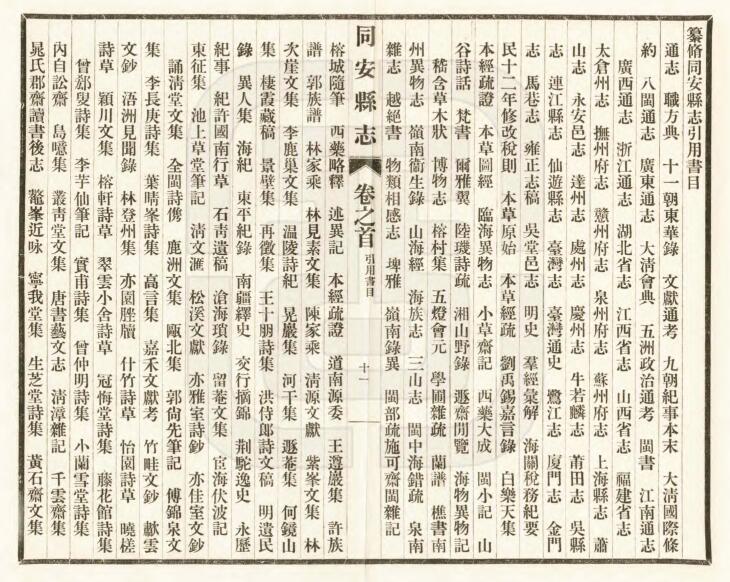 纂脩同安縣志引用書目
通志 職方典 十一朝東華錄 文獻通考 九朝紀事本末 大淸國際條
約 八閩通志 廣東通志 大淸會典 五洲政治通考 閩書 江南通志
廣西通志 浙江通志 湖北省志 江西省志 山西省志 福建省志
太倉州志 撫州府志 戇州府志 泉州府志 蘇州府志 上海縣志 蕭
山志 永安邑志 達州志 處州志 慶州志 牛若麟志 莆田志 吳縣
志 連江縣志 仙遊縣志 臺灣志 臺灣通史 鷺江志 廈門志 金門
志 馬巷志 雍正志稿 吳堂邑志 明史 羣經彙解 海關稅務紀要
民十二年修改稅則 本草原始 本草經疏 劉禹錫嘉言錄 白樂天集
本經疏證 本草圖經 臨海異物志 小草齋記 西藥大成 閩小記 山
谷詩話 梵書 爾雅翼 陸璣詩疏 湘山野錄 遯齋閒覽 海物異物記
嵇含草木狀 博物志 榕村集 五燈會元 學圃雜疏 蘭譜 樵書南
州異物志 嶺南衞生錄 山海經 海族志 三山志 閩中海錯疏 泉南
雜志 越絕書 物類相感志 埤雅 嶺南錄異 閩部疏施可齋閩雜記
同安縣志 卷之首 引用書目 十一
榕城隨筆 西藥略釋 述異記 本經疏證 道南源委 王遵巖集 許族
譜 郭族譜 林家乘 林見素文集 陳家乘 淸源文獻 紫峯文集 林
次崖文集 李鹿巢文集 温陵詩紀 晃巖集 河干集 遯菴集 何鏡山
集 棲霞藏稿 景壁集 再徵集 王十朋詩集 洪侍郎詩文稿 明遺民
錄 異人集 海紀 東平紀錄 南疆繹史 交行摘錦 荆駝逸史 永歷
紀事 紀許國南行草 石靑遺稿 滄海瑣錄 留菴文集 宦海伏波記
東征集 池上草堂筆記 淸文滙 松溪文獻 亦雅室詩鈔 亦佳室文鈔
誦淸堂文集 全閩詩儁 鹿洲文集 甌北集 郭尙先筆記 傅錦泉文
集 李長庚詩集 葉晴峯詩集 高言集 嘉禾文獻考 竹畦文鈔 歗雲
文鈔 浯洲見聞錄 林登州集 亦園脞牘 什竹詩草 怡園詩草 曉槎
詩草 穎川文集 榕軒詩草 翠雲小舎詩草 冠悔堂詩集 藤花館詩集
曾郄叟詩集 李芋仙筆記 實甫詩集 曾仲明詩集 小蘭雪堂詩集
內自訟齋 島噫集 叢靑堂文集 唐書藝文志 淸漳雜記 千雲齋集
晁氏郡齋讀書後志 鼇峯近咏 寧我堂集 生芝堂詩集 黃石齋文集